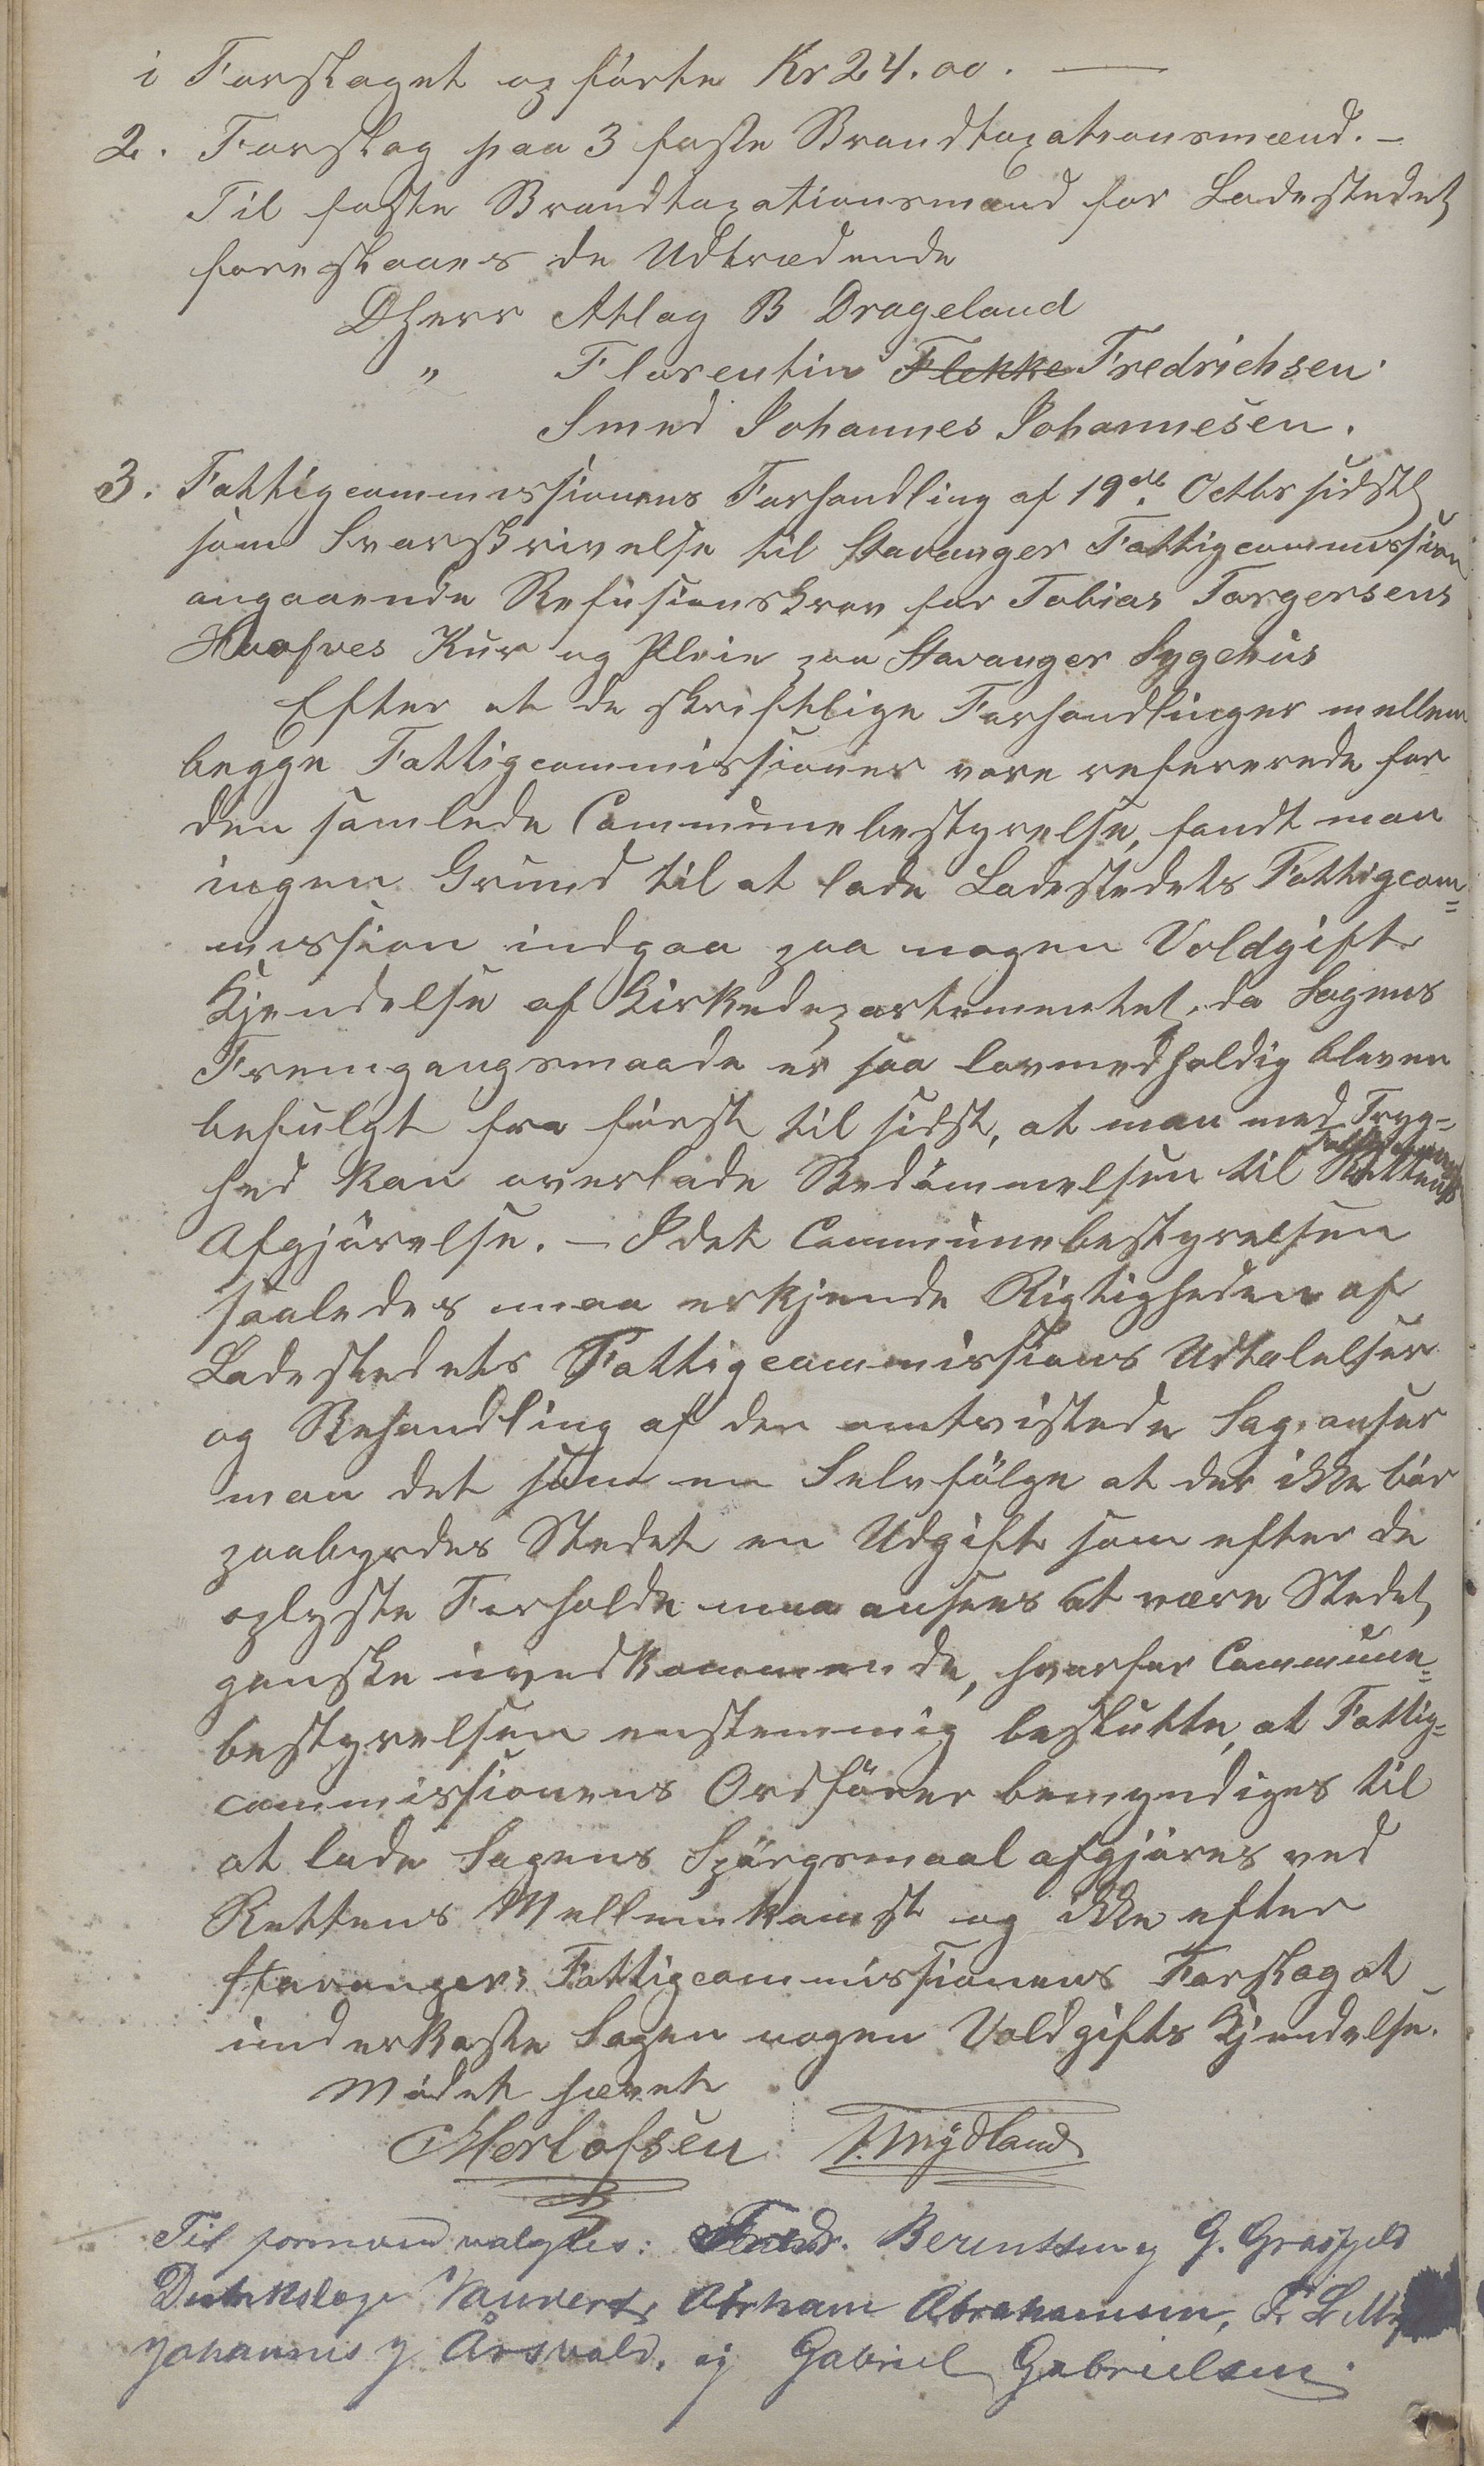 i Forslaget opförte Kr 24.00. —
2. Forslag paa 3 faste Brandtaxationsmænd. –
Til faste Brandtaxationsmænd for Ladestedet
foreslaaes de Udtrædende
DHerr Atlag B Drageland
" Florentin Flekke Fredrichsen.
Smed Johannes Johannesen.
3. Fattigcommissionens Forhandling af 19de Octbr sidstl
som Svarskrivelse til Stavanger Fattigcommission
angaaende Refusionskrav for Tobias Torgersens
Kur og Pleie paa Stavanger Sygehus
Efter at de skriftlige Forhandlinger mellem
begge Fattigcommissioner vare refererede for
den samlede Communebestyrelse, fandt man
ingen Grund til at lade Ladestedets Fattigcom=
mission indgaa paa nogen Voldgifts
Kjendelse af Kirkedepartementet, da Sagens
Fremgangsmaade er saa lovmedholdig bleven
befulgt fra först til sidst, at man med Tryg=
hed kan overlade Bedömmelsen til Rettens
Afgjörelse. – Idet Communebestyrelsen
saaledes maa erkjende Rigtigheden af
Ladestedets Fattigcommissions Udtalelser
og Behandling af den omtvistede Sag, anser
man det som en Selvfölge at der ikke bör
paabyrdes Stedet en Udgift som efter de
oplyste Forholde maa ansees at være Stedet
ganske uvedkommende, hvorfor Commune=
bestyrelsen enstemmig beslutte, at Fattig=
commissionens Ordförer bemyndiges til
at lade Sagens Spörgsmaal afgjöres ved
Rettens Mellemkomst og ikke efter
Stavanger Fattigcommissionens Forslag at
underkaste Sagen nogen Voldgifts Kjendelse.
Mödet hævet
Herlofsen T. Mydland
Til formænd valgtes: Berentsen og G. Grasfjeld
Abrham Abrahamsen,
Johannes J Årsvald, og Gabriel Gabrielsen.